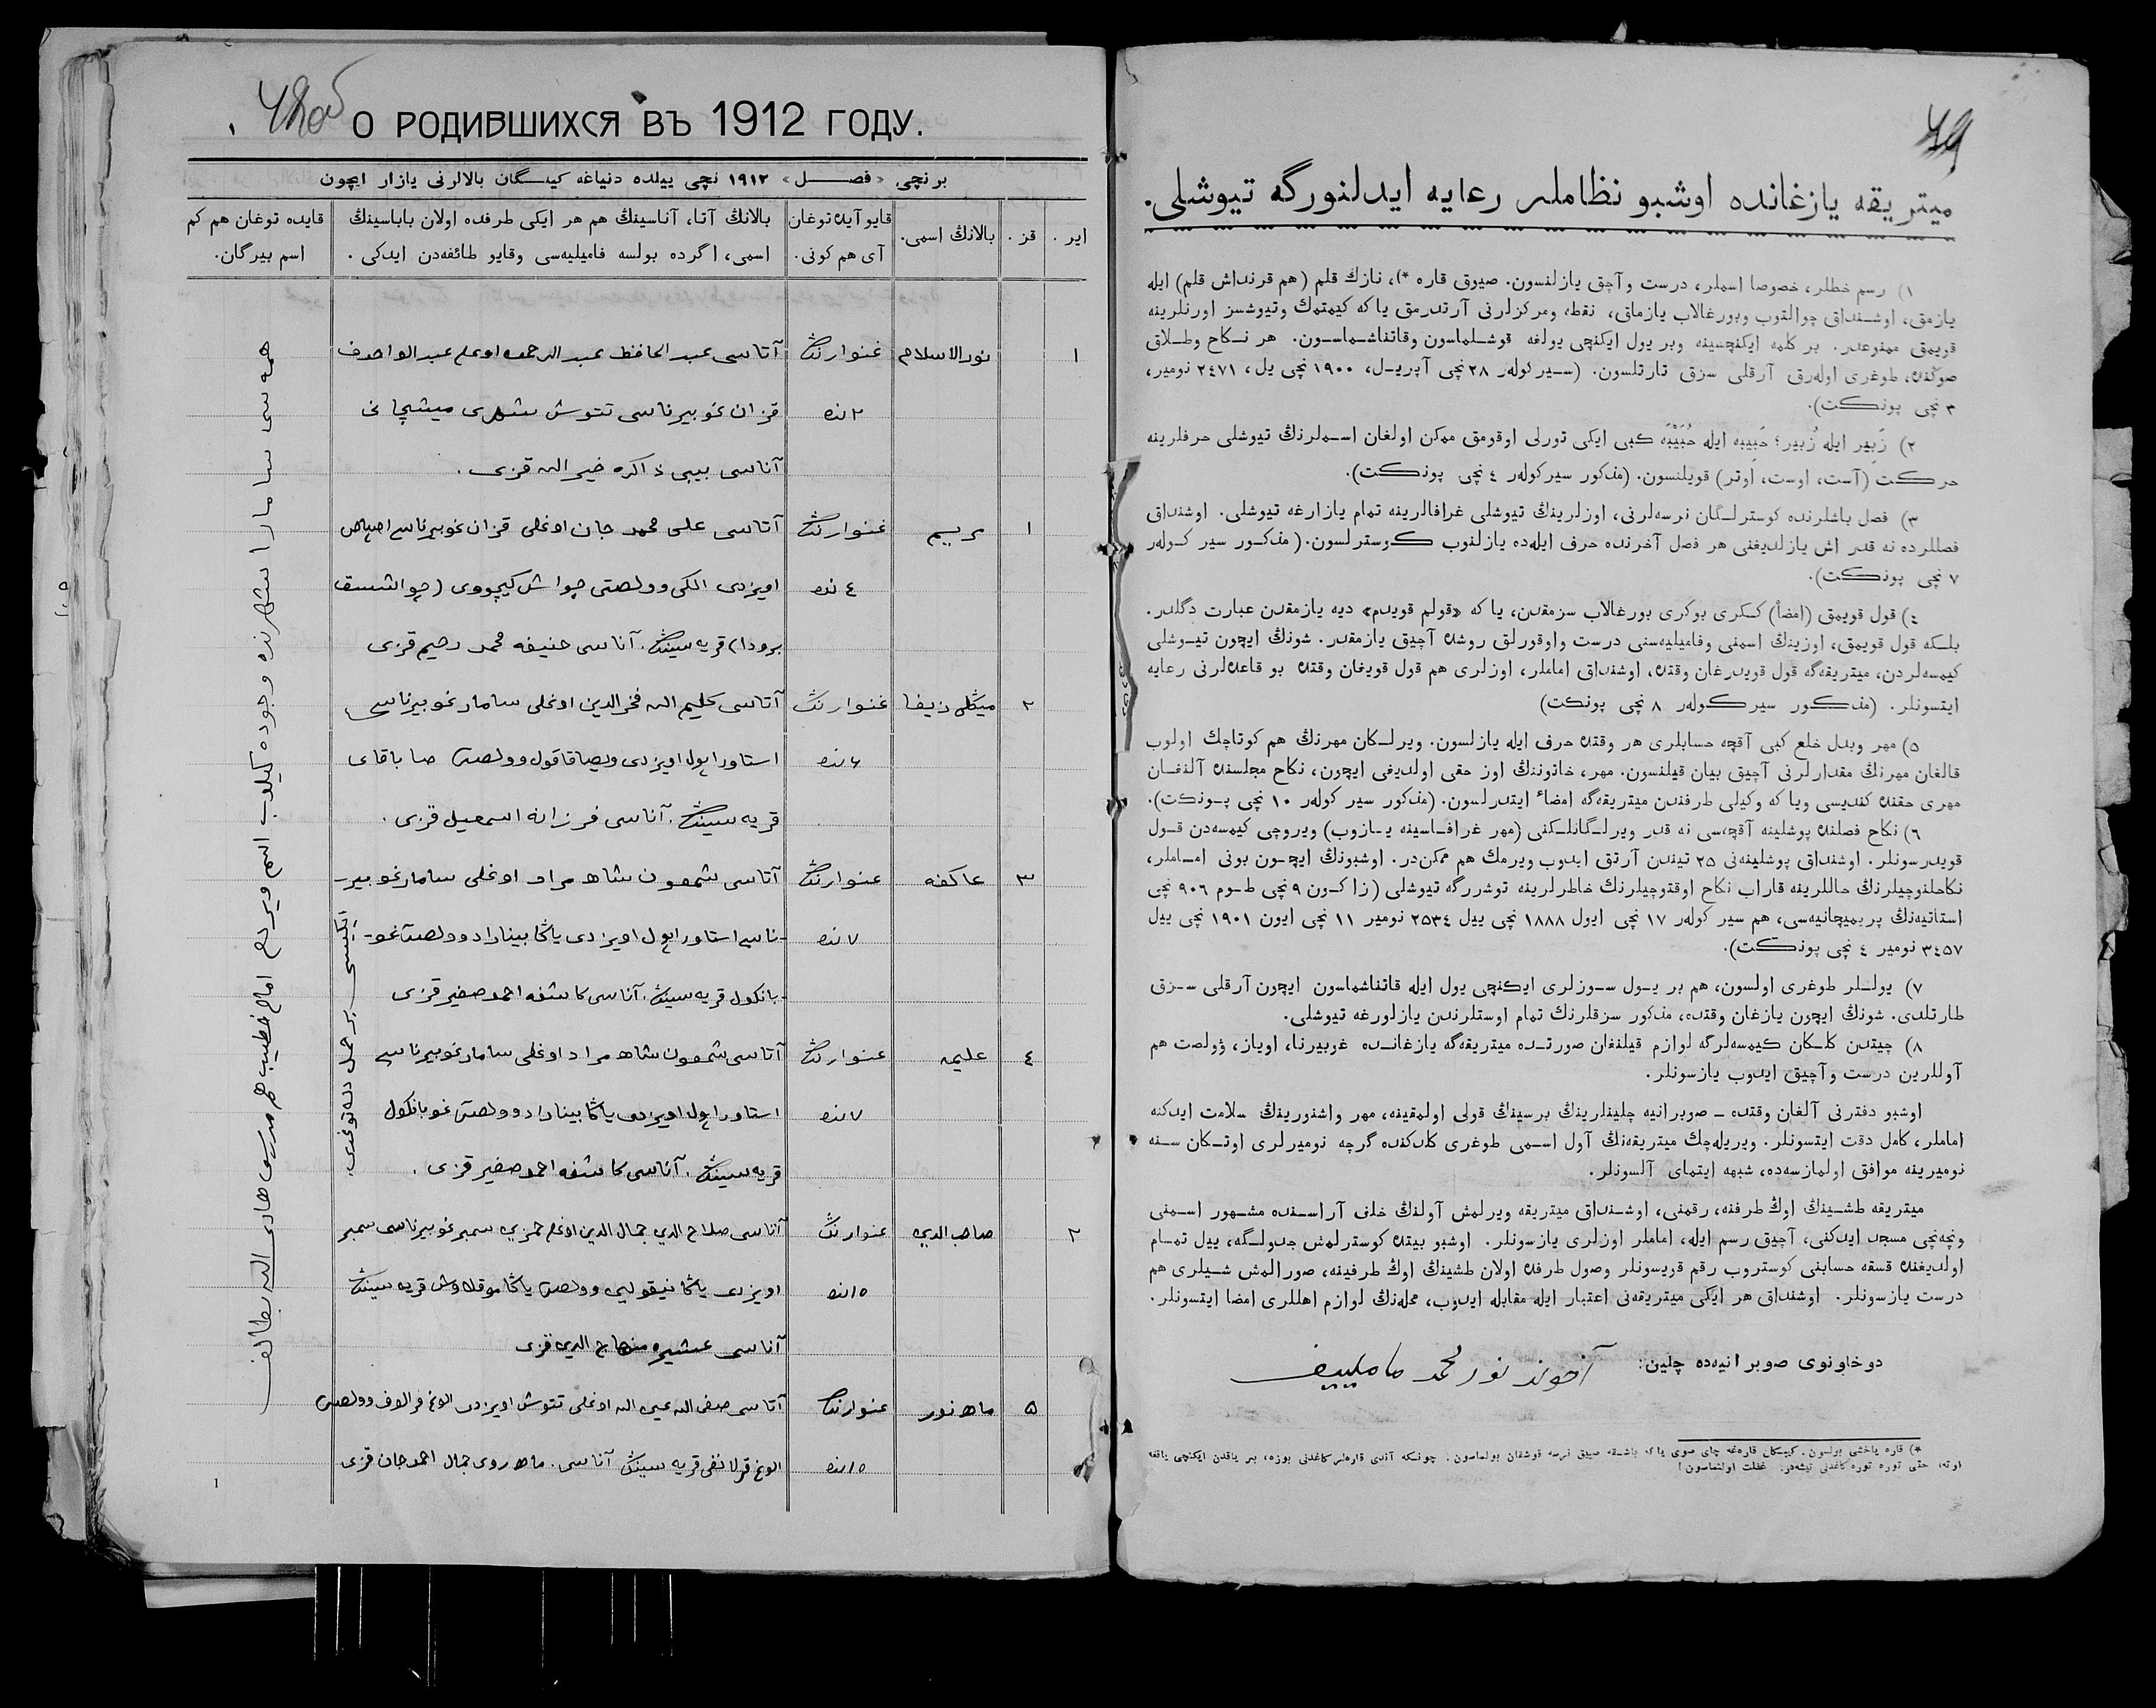 О РОДИВШИХСЯ ВЪ 1912 ГОДУ.
برنچی «فصل» ١٩١٢ نچی ییلده دنیاغه کیلگان بالالرنی یازار ایچون
ایر.
قز.
بالانڭ اسمی.
قایو آیده توغان
آی هم کونی.
بالانڭ آتا، آناسینڭ هم هر ایکی طرفده اولان باباسینڭ
اسمی، اگرده بولسه فامیلیه‌سی وقایو طائفه‌دن ایدکی.
قایده توغان هم کم
اسم بیرگان.
١ نورالاسلام غنوارنڭ آتاسی عبد الحافظ عبد الرحمن اوغلی عبد الواحدف
٢ نده قزان غوبیرناسی تتوش شهری میشچانی
آناسی بیبی ذاکره خیر الله قزی.
١ مریم غنوارنڭ آتاسی علی محمد جان اوغلی قزان غوبیرناسی
٤ نده اویزدی الکی وولصتی چواش کیچووی (چوالششق
برودا) قریه سینڭ. آناسی حنیفه محمد رحیم قزی
٢ مینکلی زیفا غنوارنڭ آتاسی علیم الله فخرالدین اوغلی سامار غوبیرناسی
٦ نده استاوراپول اویزدی وولصتی صاباقای
قریه سینڭ. آناسی فرزانه اسمعیل قزی.
٣ عاکفه غنوارنڭ آتاسی شمعون شاه مراد اوغلی سامار غوبیر-
٧ نده -ناسی استاوراپول اویزدی یاڭا بینارادا وولصتی غو-
-بانکول قریه سینڭ. آناسی کاشفه احمد صفیر قزی
٤ علیمه غنوارنڭ آتاسی شمعون شاه مراد اوغلی سامار غوبیرناسی
٧ نده استاوراپول اویزدی یاڭا بینارادا وولصتی غوبانکول
قریه سینڭ. آناسی کاشفه احمد صفیر قزی.
٢ صاحب الدین غنوارنڭ آتاسی صلاح الدین جمال الدین اوغلی سمبر غوبیرناسی سمبر
١٥ نده اویزدی یاڭا نیقولای وولصتی یاڭا قریه سینڭ
آناسی منهاج الدین قزی
٥ ماه نور غنوارنڭ آتاسی صفی الله اوغلی تتوش اویزدی وولصتی
١٥ نده قریه سینڭ آناسی. ماهروی جمال احمد جان قزی
همه سی سامارا شهرنده وجوده کیلوب اسم ویردم امام خطیب هم مدرس
79
میتریقه یازغانده اوشبو نظاملر رعایه ایدلنورگه تیوشلی.
١) رسم خطلر، خصوصا اسملر، درست و آچق یازلنسون. صیوق قاره *)، نازك قلم (هم قرنداش قلم) ایله
یازمق، اوشنداق چوالتوب وبورغالاب یازماق، نقطه ومرکزلرنی آرتدرمق یا که کیمتمك وتیوشسز اورنلرینه
قویمق ممنوعدر. بر کلمه ایکنچسینه وبر یول ایکنچی یولغه قوشلماسون وقاتناشماسون. هر نکاح وطلاق
صوڭنده، طوغری اوله‌رق آرقلی سزق تارتلسون. (سیرکولەر ٢٨ نچی آپریل، ١٩٠٠ نچی یل، ٢٤٧١ نومیر،
٣ نچی پونکت).
٢) زَبیر ایله زُبیر؛ حَبیبه ایله حُبَیْبَه کبی ایکی تورلی اوقومق ممکن اولغان اسملرنڭ تیوشلی حرفلرینه
حرکت (آست، اوست، اوتر) قویلنسون. (مذکور سیرکولەر ٤ نچی پونکت).
٣) فصل باشلرنده کوسترلگان نرسه‌لرنی، اوزلرینڭ تیوشلی غرافالرینه تمام یازارغه تیوشلی. اوشنداق
فصللرده نه قدر اش یازلدیغنی هر فصل آخرنده حرف ایله‌ده یازلنوب کوسترلسون. (مذکور سیر کولەر
٧ نچی پونکت).
٤) قول قویمق (امضأ) کـکری بوکری بورغالاب سزمقدن، یا که «قولم قویدم» دیه یازمقدن عبارت دگلدر.
بلکه قول قویمق، اوزینڭ اسمنی وفامیلیه‌سنی درست واوقورلق روشده آچیق یازمقدر. شونڭ ایچون تیوشلی
کیمسه‌لردن، میتریقه‌گه قول قویدرغان وقتده، اوشنداق اماملر، اوزلری هم قول قویغان وقتده بو قاعده‌لرنی رعایه
ایتسونلر. (مذکور سیرکولەر ٨ نچی پونکت)
٥) مهر وبدل خلع کبی آقچه حسابلری هر وقتده حرف ایله یازلسون. ویرلکان مهرنڭ هم کوتاچك اولوب
قالغان مهرنڭ مقدارلرنی آچیق بیان قیلنسون. مهر، خاتوننڭ اوز حقی اولدیغی ایچون، نکاح مجلسنده آلنغان
مهری حقنده کندیسی ویا که وکیلی طرفندن میتریقه‌گه امضاء ایتدرلسون. (مذکور سیر کولەر ١٠ نچی پونکت).
٦) نکاح فصلنده پوشلینه آقچه‌سی نه قدر ویرلگانلکنی (مهر غرافاسینه یازوب) ویروچی کیمسه‌دن قول
قویدرسونلر. اوشنداق پوشلینه‌نی ٢٥ تیندن آرتق ایدوب ویرمك هم ممکن‌در. اوشبونڭ ایچون بونی اماملر،
نکاحلنوچیلرنڭ حاللرینه قاراب نکاح اوقتوچیلرنڭ خاطرلرینه توشررگه تیوشلی (زاکون ٩ نچی طوم ٩٠٦ نچی
استاتیه‌نڭ پریمیچانیه‌سی، هم سیر کولەر ١٧ نچی ایول ١٨٨٨ نچی ییل ٢٥٣٤ نومیر ١١ نچی ایون ١٩٠١ نچی ییل
٣٤٥٧ نومیر ٤ نچی پونکت).
٧) یوللر طوغری اولسون، هم بر یول سوزلری ایکنچی یول ایله قاتناشماسون ایچون آرقلی سزق
طارتلدی. شونڭ ایچون یازغان وقتده، مذکور سزقلرنڭ تمام اوستلرندن یازلورغه تیوشلی.
٨) چیتدن کلکان کیمسه‌لرگه لوازم قیلنغان صورتده میتریقه‌گه یازغانده غوبیرنا، اویاز، ؤولصت هم
آوللرین درست وآچیق ایدوب یازسونلر.
اوشبو دفترنی آلغان وقتده – صوبرانیه چلینلرینڭ برسینڭ قولی اولمقینه، مهر واشنورینڭ سلامت ایدکنه
اماملر، کامل دقت ایتسونلر. ویریله‌چك میتریقه‌نڭ آول اسمی طوغری کلدکنده گرچه نومیرلری اوتکان سنه
نومیرینه موافق اولمازسه‌ده، شبهه ایتمای آلسونلر.
میتریقه طشینڭ اوڭ طرفنه، رقمنی، اوشنداق میتریقه ویرلمش آولنڭ خلف آراسنده مشهور اسمنی
ونچه‌نچی مسجد ایدکنی، آچیق رسم ایله، اماملر اوزلری یازسونلر. اوشبو بیتده کوسترلمش جدولگه، ییل تمام
اولدیغنده قسقه حسابنی کوستروب رقم قویسونلر وصول طرفده اولان طشینڭ اوڭ طرفینه، صورالمش شیلری هم
درست یازسونلر. اوشنداق هر ایکی میتریقه‌نی اعتبار ایله مقابله ایدوب، محله‌نڭ لوازم اهللری امضا ایتسونلر.
دوخاونوی صوبرانیه‌ده چلین: آخوند نور محمد ماملییف
*) قاره یاخشی بولسون. کیبکان قاره‌غه چای صوی یا که باشقه صیق نرسه قوشقان بولماسون؛ چونکه آندی قاره‌لر کاغدنی بوزه، بر یاقدن ایکنچی یاققه
اوته، حتی توره توره کاغدنی تیشه‌در. غفلت اولنماسون!